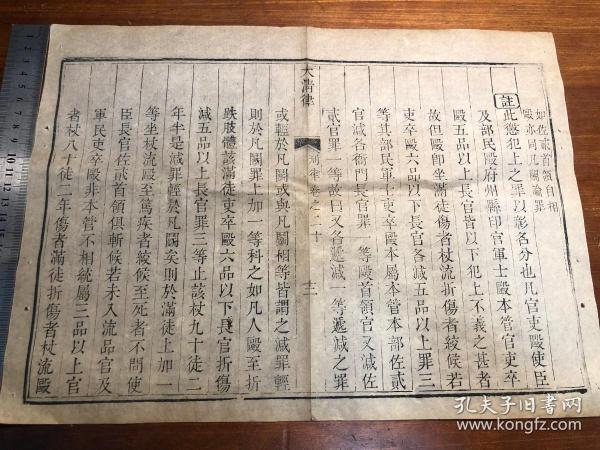 如佐貳首領自相
毆亦同凡鬭論罪
註此懲犯上之罪以彰名分也凡官吏毆使臣
及部民毆府州縣印官軍士毆本管官吏卒
毆五品以上長官皆以下犯上不義之甚者
故但毆即坐滿徒傷者杖流折傷者絞候若
吏卒毆六品以下長官各減五品以上罪三
等其部民軍士吏卒毆本屬本管本部佐貳
官減各衙門長官罪一等毆首領官又減佐
貳官罪一等故曰又各遞減一等遞減之罪
大清律
刑律卷之二十
十二
或輕於凡鬭或與凡鬭相等皆謂之減罪輕
則於凡鬭罪上加一等科之如凡人毆至折
跌肢體該滿徒吏卒毆六品以下長官折傷
減五品以上長官罪三等止該杖九十徒二
年半是減罪輕於凡鬭矣則於滿徒上加一
等坐杖流毆至篤疾者絞候至死者不問使
臣長官佐貳首領俱斬候若未入流品官及
軍民吏卒毆非本管不相統屬三品以上官
者杖八十徒二年傷者滿徒折傷者杖流毆
孔夫子旧书网
www.kongfz.com